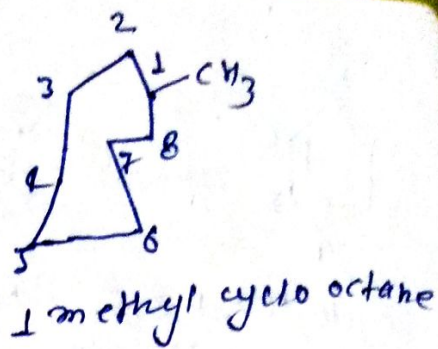 2
1
CH3
3
8
7
4
6
5
1 methyl cyclo octane